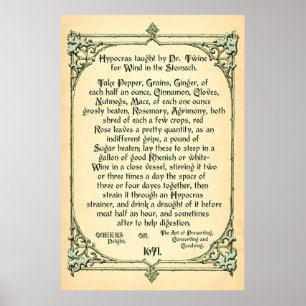 Hypocras taught by Dr. Twine
for Wind in the Stomach.
Take Pepper, Grains, Ginger, of
each half an ounce, Cinnamon, Cloves,
Nutmegs, Mace, of each one ounce
grosly beaten, Rosemary, Agrimony, both
shred of each a few crops, red
Rose leaves a pretty quantity, as an
indifferent gripe, a pound of
Sugar beaten; lay these to steep in a
gallon of good Rhenish or white-
Wine in a close vessel, stirring it two
or three times a day the space of
three or four dayes together, then
strain it through an Hypocras
strainer, and drink a draught of it before
meat half an hour, and sometimes
after to help digestion.
QUEENS
Delight
OR,
The Art of Preserving,
Conserving and
Candying.
1671.